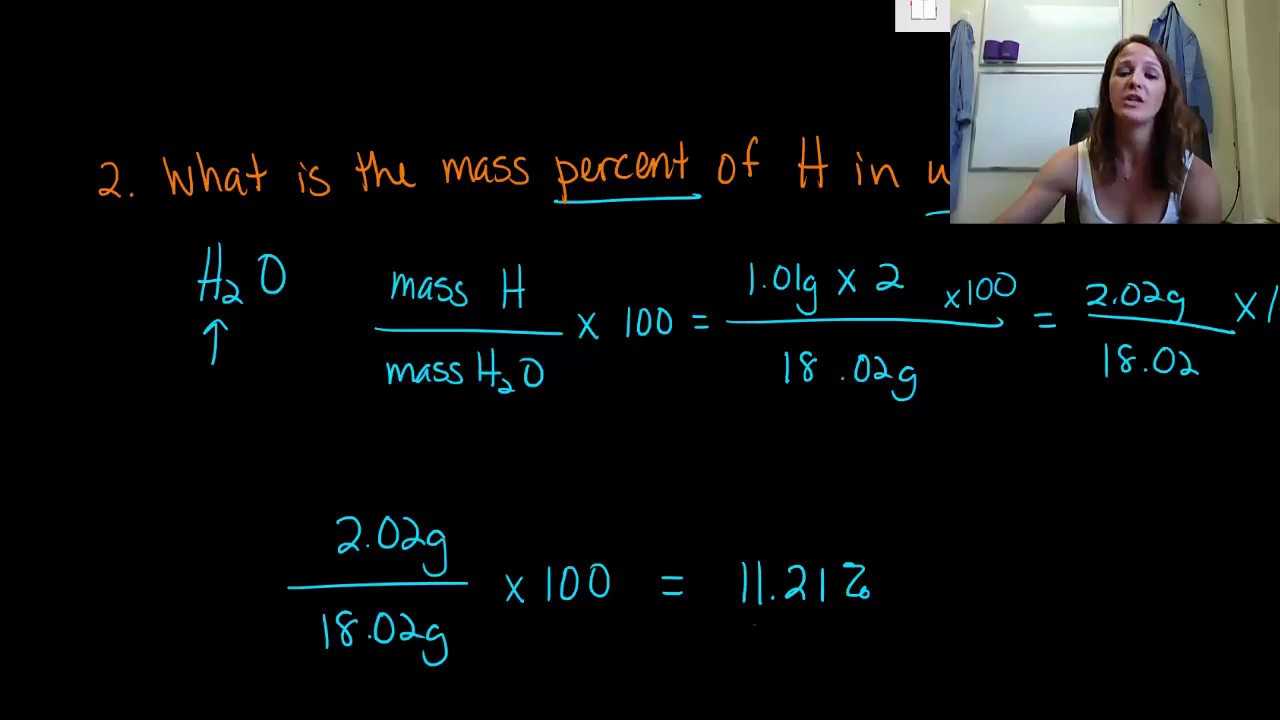 2. What is the mass percent of H in
H₂O mass H / mass H₂O x 100 = 1.01g x 2 x100 / 18.02g = 2.02g / 18.02 x 1
2.02g / 18.02g x 100 = 11.21%